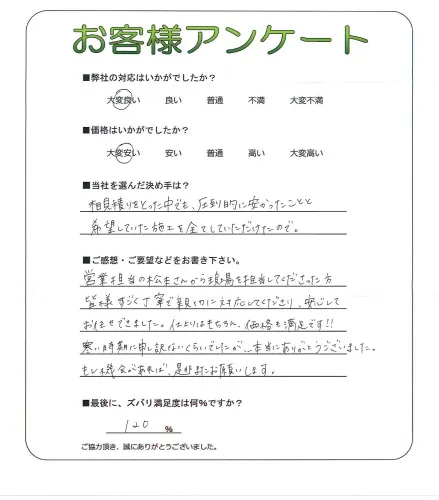 お客様アンケート
■弊社の対応はいかがでしたか？
大変良い 良い 普通 不満 大変不満
■価格はいかがでしたか？
大変安い 安い 普通 高い 大変高い
■当社を選んだ決め手は？
相見積りをとった中でも、圧倒的に安かったことと
希望していた施工を全てしていただけたので。
■ご感想・ご要望などをお書き下さい。
営業担当の松本さんから現場を担当してくださった方
皆様すごく丁寧で親切に対応してくださり、安心して
お任せできました。仕上りはもちろん、価格も満足です!!
寒い時期に申し訳ないくらいでしたが…本当にありがとうございました。
もし機会があれば、是非またお願いします。
■最後に、ズバリ満足度は何％ですか？
120 ％
ご協力頂き、誠にありがとうございました。